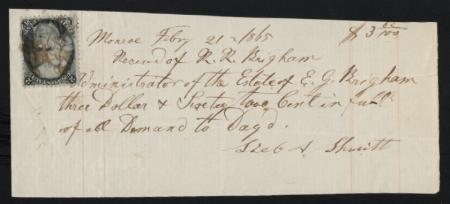 Monroe Fbry 21 - 1865 $ 3
Received of R. R. Brigham
Administrator of the Estate of E. G. Brigham
three Dollar & Sixty two Cent in full
of all Demand to Day'd.